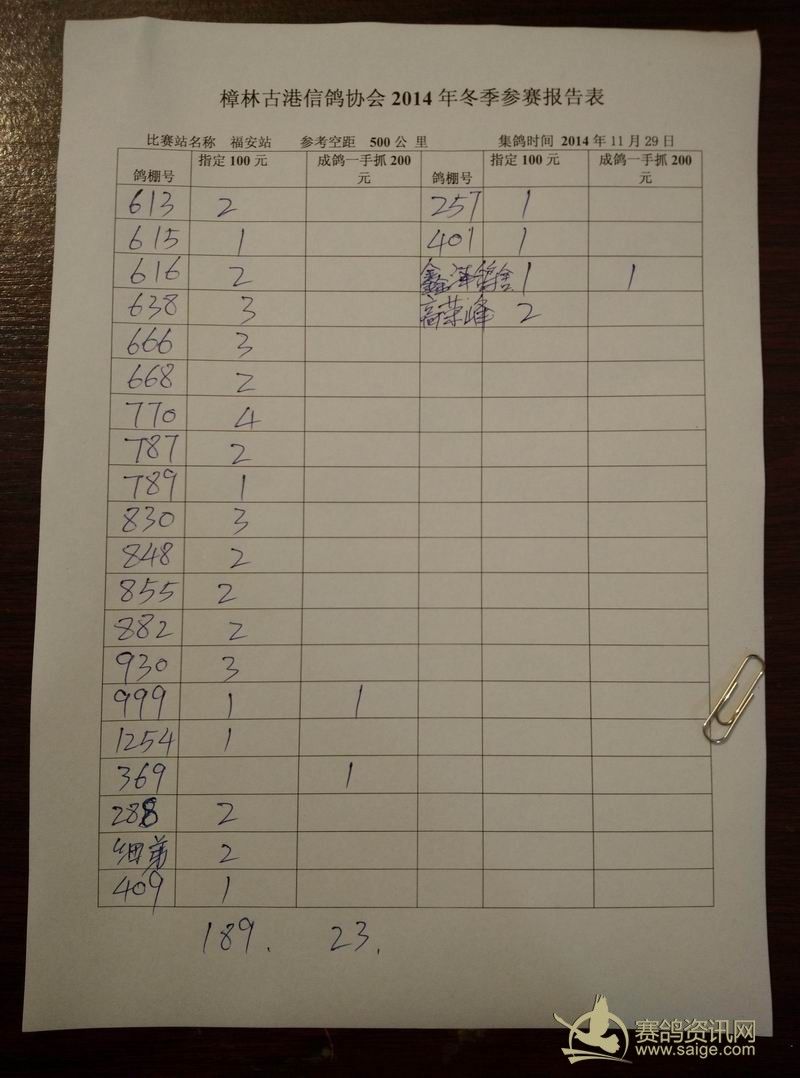 樟林古港信鸽协会 2014 年冬季参赛报告表
比赛站名称 福安站 参考空距 500 公 里 集鸽时间 2014 年 11 月 29 日
鸽棚号 指定 100 元 成鸽一手抓 200 元 鸽棚号 指定 100 元 成鸽一手抓 200 元
613 2 257 1
615 1 401 1
616 2 鑫泽鸽舍 1 1
638 3 高荣峰 2
666 3
668 2
770 4
787 2
789 1
830 3
848 2
855 2
882 2
930 3
999 1 1
1254 1
369 1
288 2
细弟 2
409 1
189. 23.
赛鸽资讯网
www.saige.com